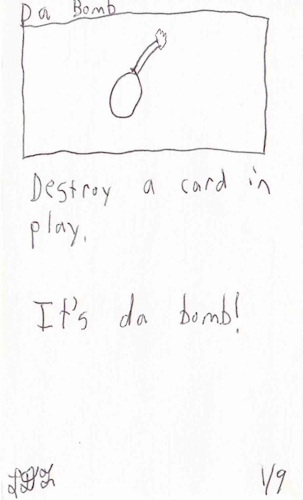 Da Bomb
Destroy a card in
play.
It's da bomb!
1/9